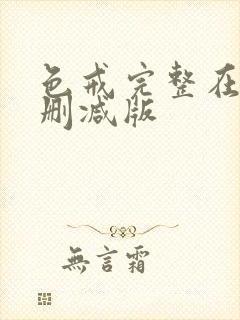 色戒完整在
删减版
無言霜